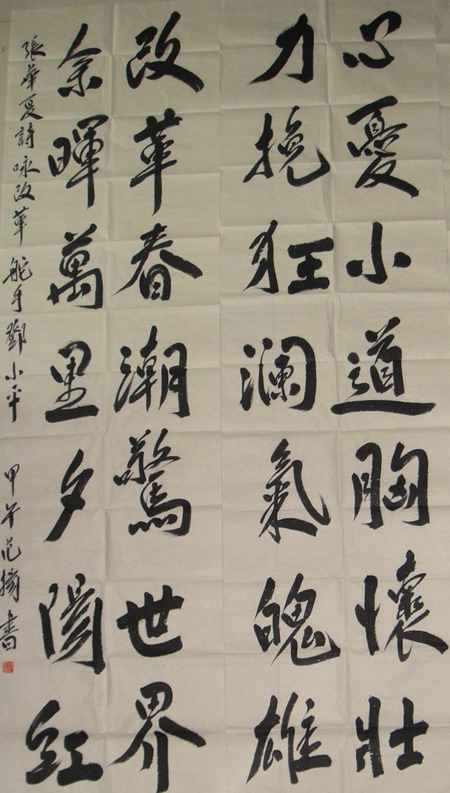 心憂小道胸懷壯
力挽狂澜氣魄雄
改革春潮驚世界
余暉萬里夕陽紅
張華夏詩咏改革舵手鄧小平 甲午范書